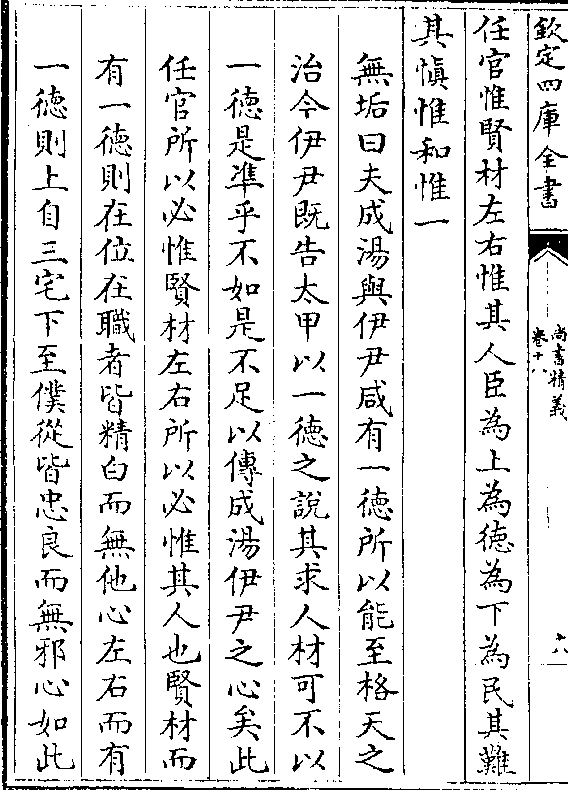 欽定四庫全書
尚書精義
卷十八
六
任官惟賢材左右惟其人臣為上為德為下為民其難
其愼惟和惟一
無垢曰夫成湯與伊尹咸有一德所以能至格天之
治今伊尹既告太甲以一德之說其求人材可不以
一德是準乎不如是不足以傳成湯伊尹之心矣此
任官所以必惟賢材左右所以必惟其人也賢材而
有一德則在位在職者皆精白而無他心左右而有
一德則上自三宅下至僕從皆忠良而無邪心如此